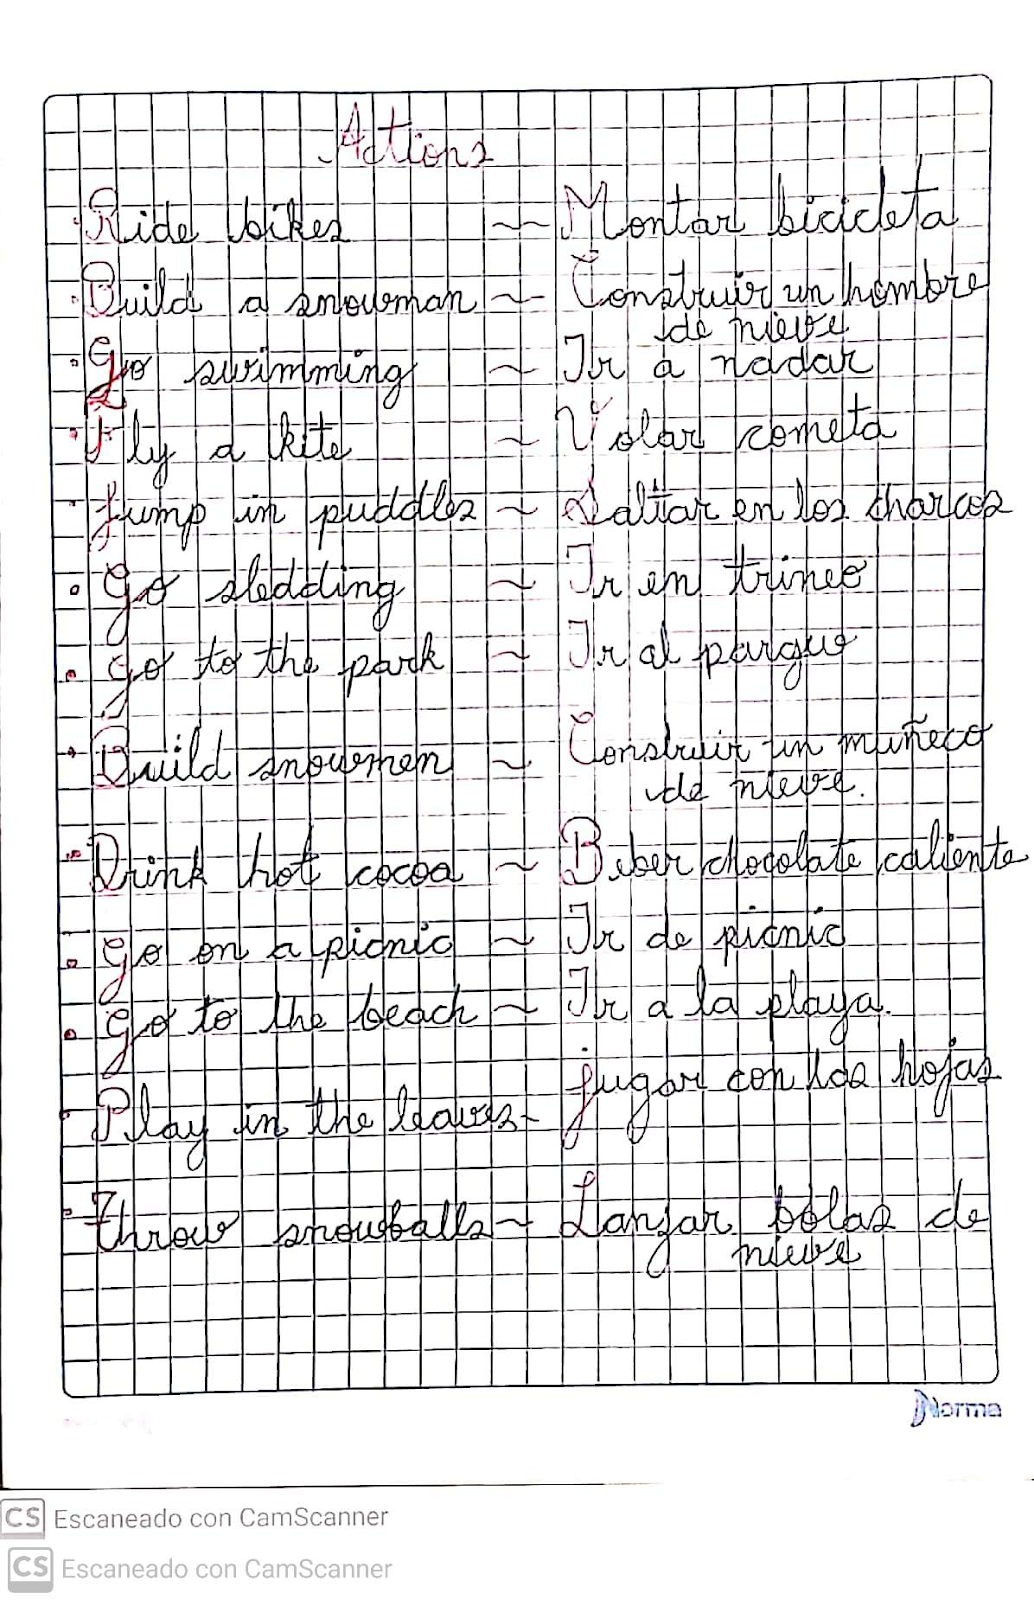 Actions
Ride bikes ~ Montar bicicleta
Build a snowman ~ Construir un hombre
de nieve
Go swimming ~ Ir a nadar
Fly a kite ~ Volar cometa
Jump in puddles ~ Saltar en los charcos
Go sledding ~ Ir en trineo
go to the park ~ Ir al parque
Build snowmen ~ Construir un muñeco
de nieve.
Drink hot cocoa ~ Beber chocolate caliente
Go on a picnic ~ Ir de picnic
Go to the beach ~ Ir a la playa.
Play in the leaves - jugar con las hojas
Throw snowballs ~ Lanzar bolas de
nieve
Norma
CS Escaneado con CamScanner
CS Escaneado con CamScanner